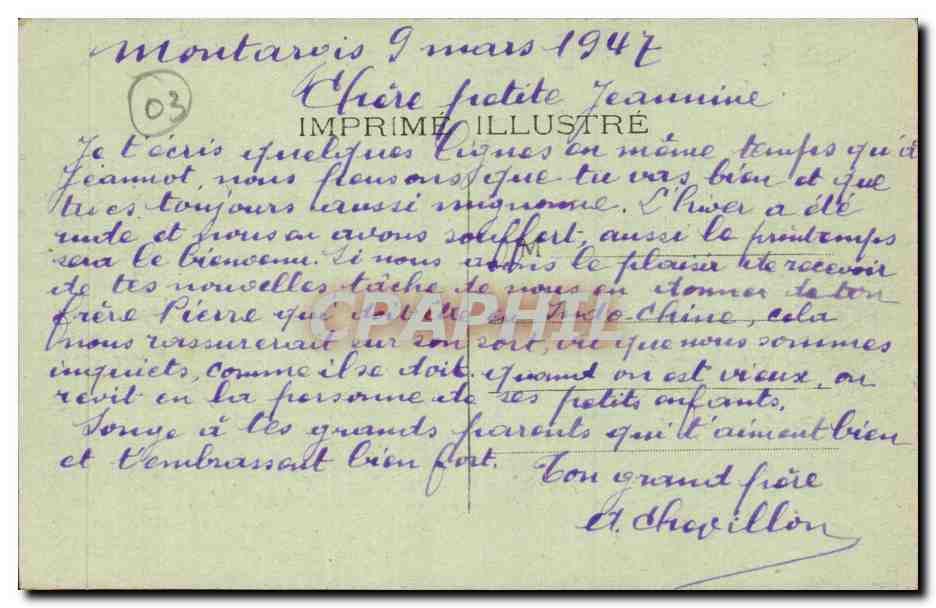 Montargis 9 mars 1947
03
Chère petite Jeannine
IMPRIMÉ ILLUSTRÉ
Je t'écris quelques lignes en même temps qu'à
Jeannot, nous pensons que tu vas bien et que
tu es toujours aussi mignonne. L'hiver a été
rude et nous en avons souffert, aussi le printemps
M
sera le bienvenu. Si nous avons le plaisir de recevoir
de tes nouvelles tâche de nous en donner de ton
CPAPHIL
frère Pierre qui doit être en Indo-Chine, cela
nous rassurerait sur son sort, vu que nous sommes
inquiets, comme il se doit. quand on est vieux, on
revit en la personne de ses petits enfants.
Songe à tes grands parents qui t'aiment bien
et t'embrassent bien fort.
Ton grand père